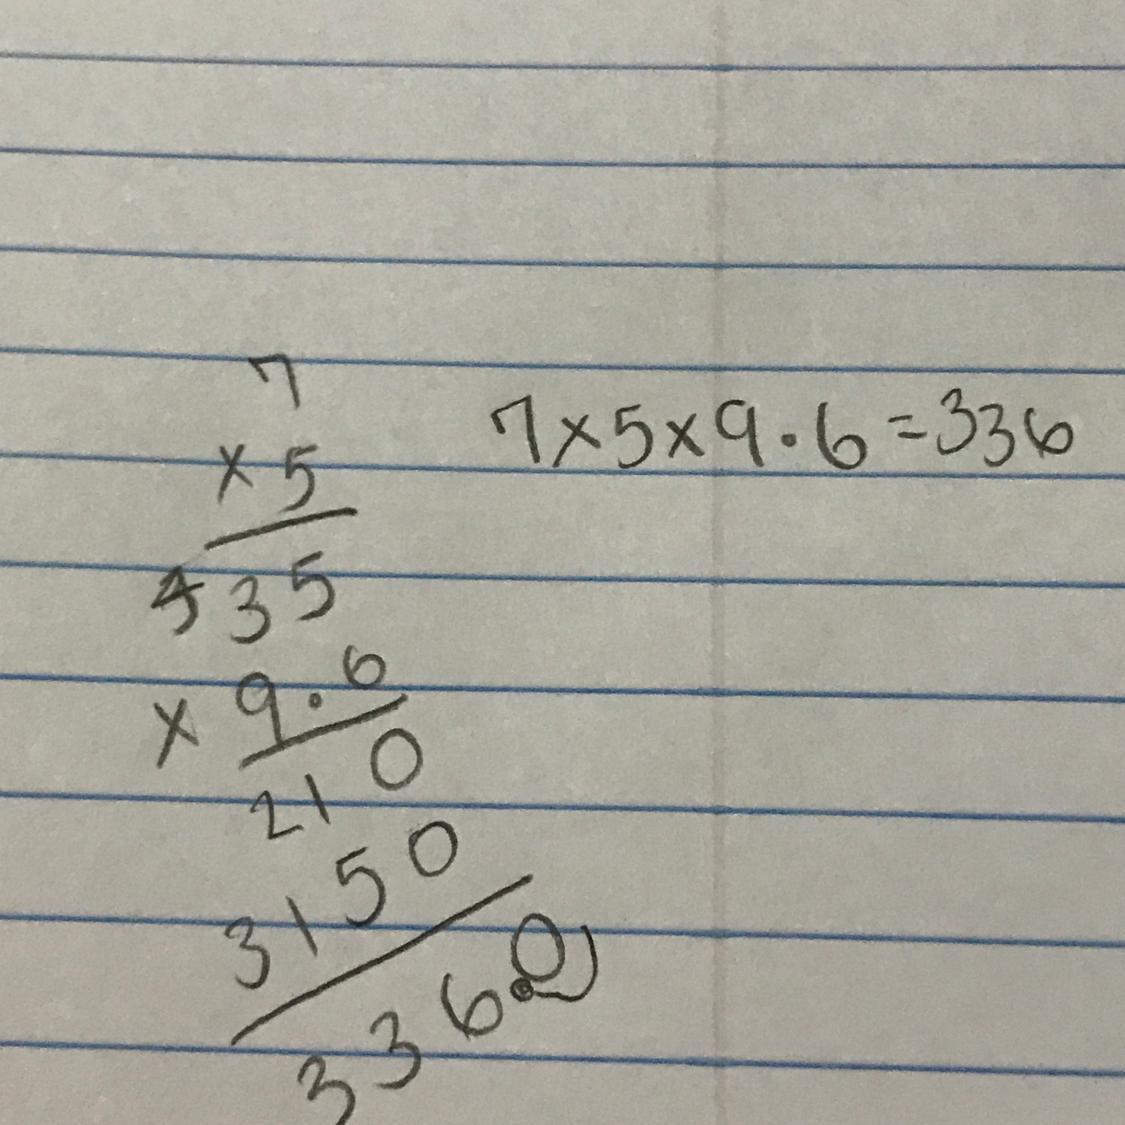 7
× 5
4 35
× 9.6
210
3150
336.0
7×5×9.6=336